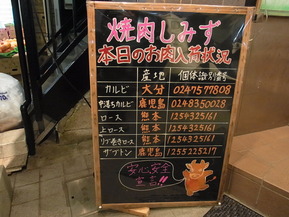 焼肉しみず
本日のお肉入荷状況
産地 個体識別番号
カルビ 大分 0247577808
中落ちカルビ 鹿児島 0248350028
ロース 熊本 1254325161
上ロース 熊本 1254325161
リブ巻きロース 熊本 1254325161
ザブトン 鹿児島 1255225217
安心安全
宣言!!